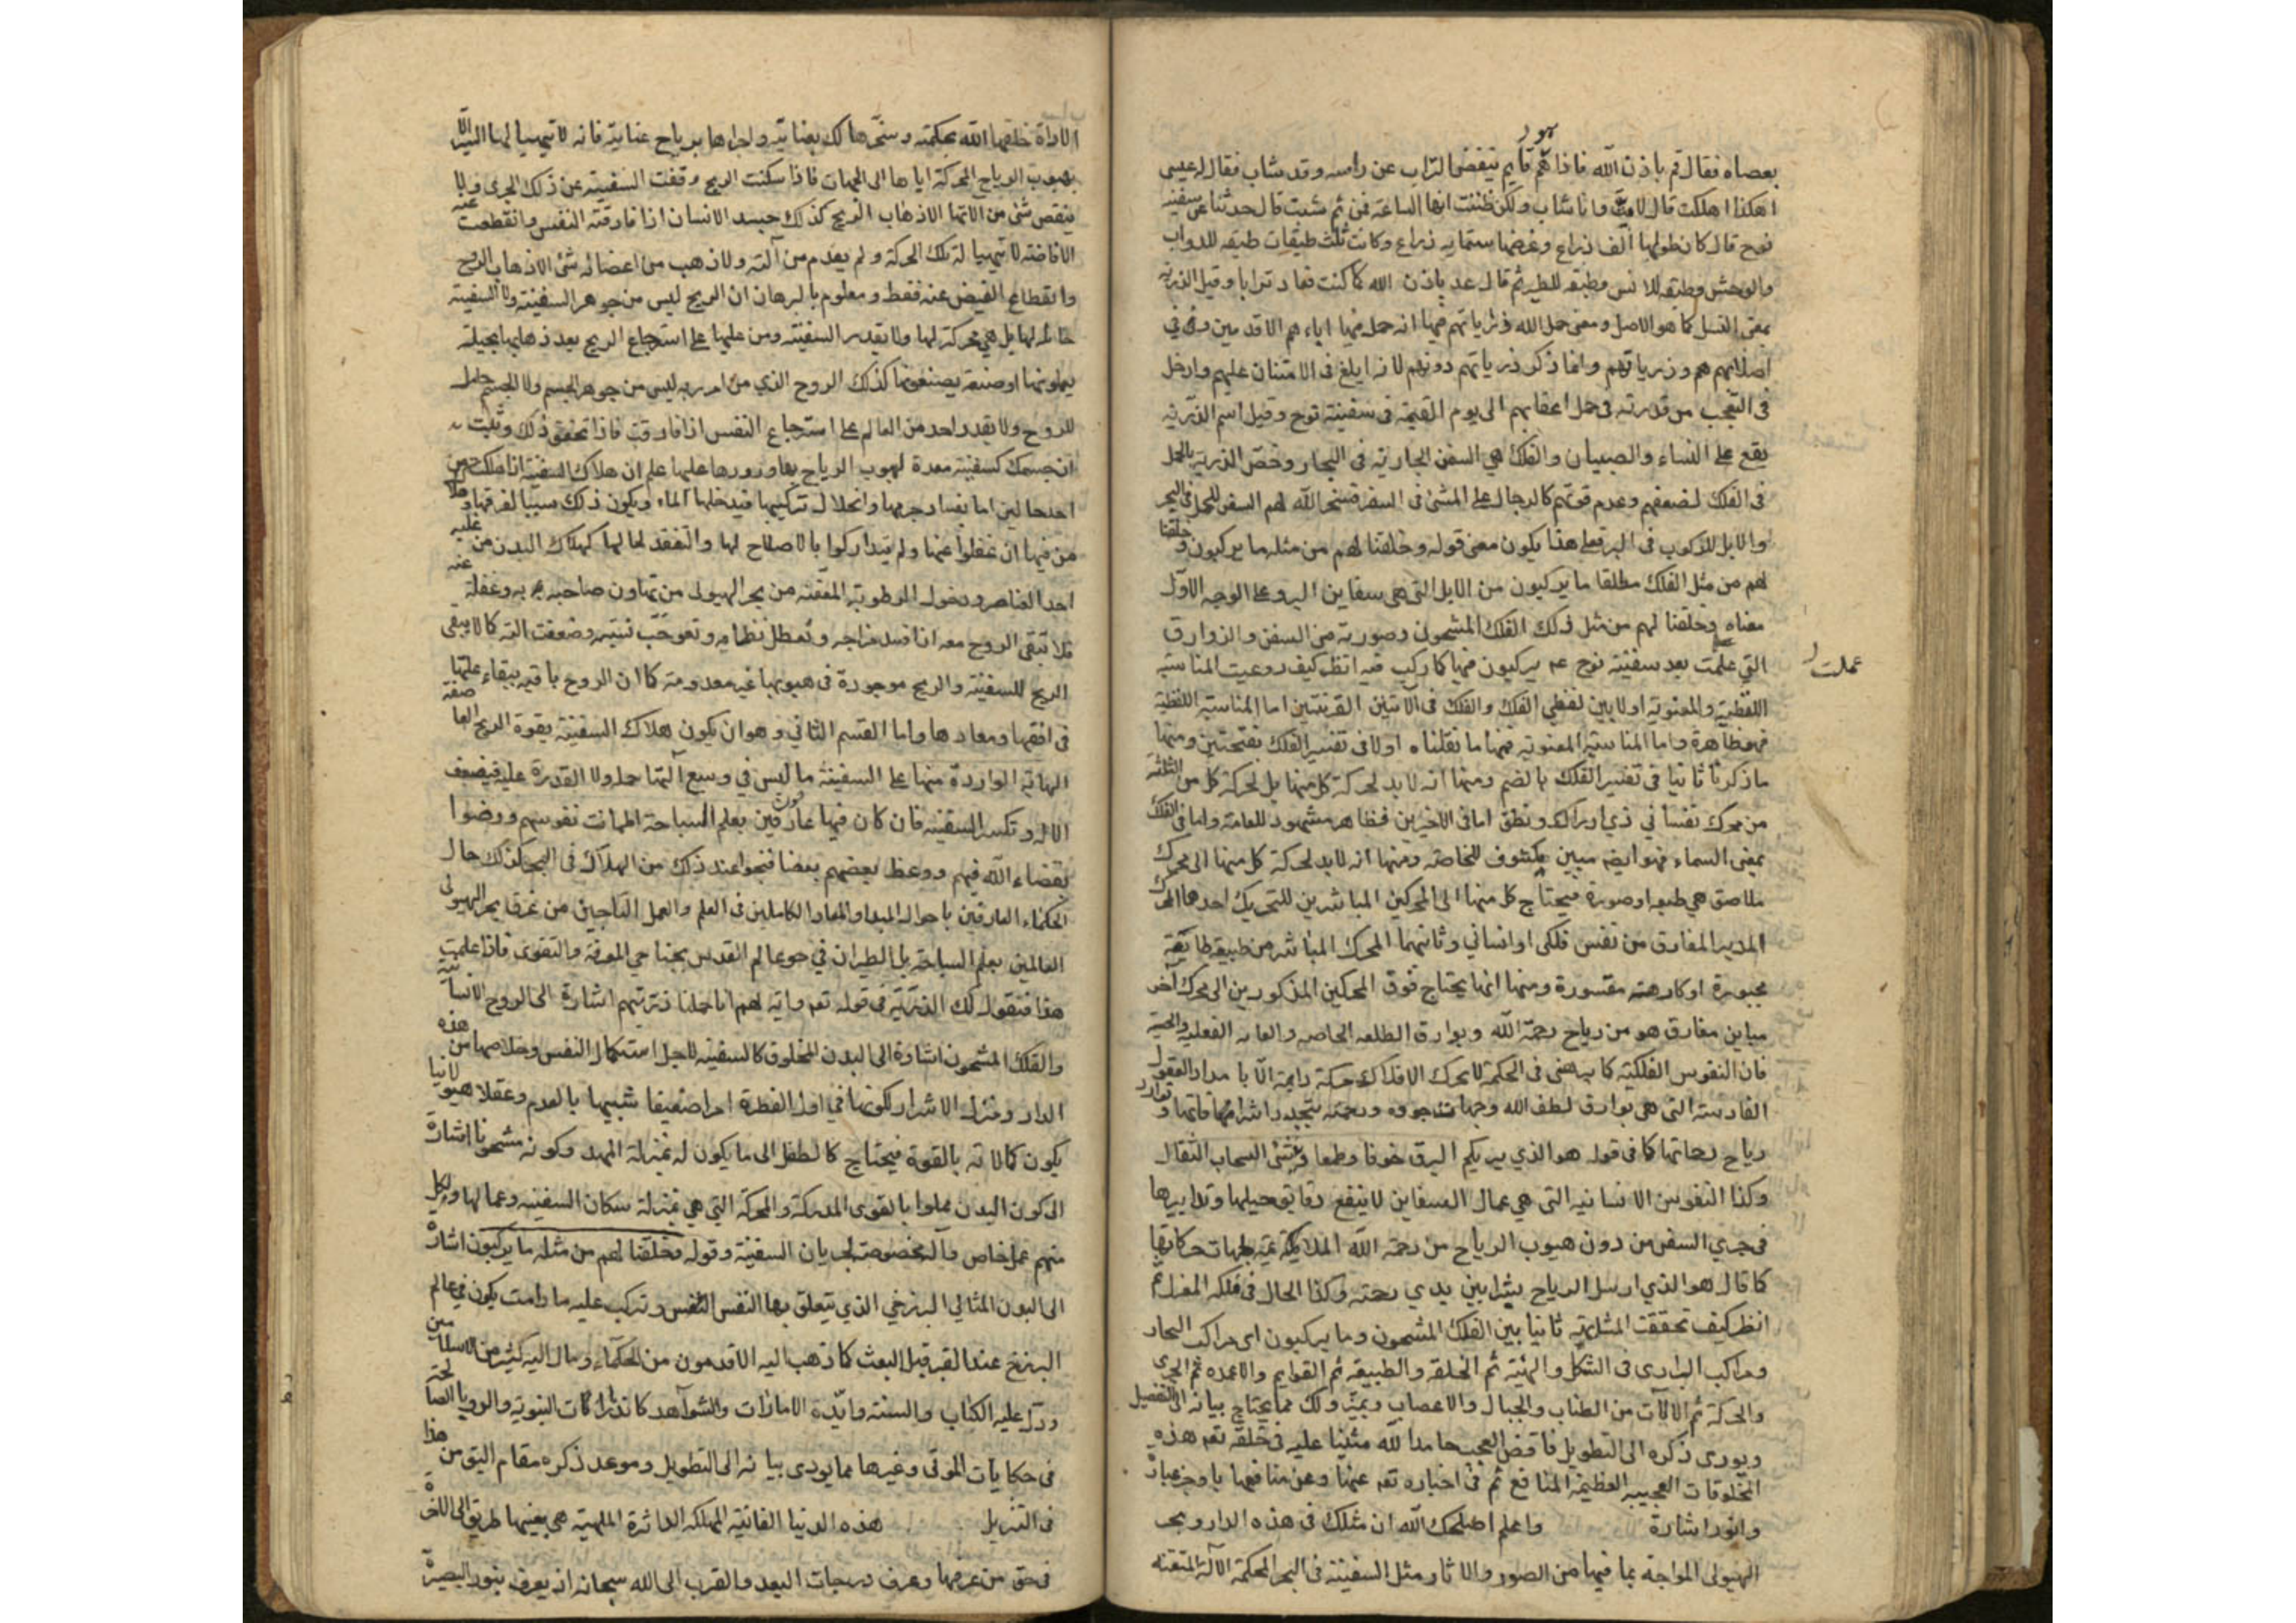 بعصاه فقال قم باذن الله فاذا هم قايم ينفض التراب عن راسه وقد شاب فقال له عيسى
اهكذا هلكت قال لا مت وانا شاب ولكن ظننت انها الساعة فمن ثم شبت قال حدثنا عن سفينه
نوح قال كان طولها الف ذراع وعرضها ستمايه ذراع وكانت ثلث طبقات طبقه للدواب
والوحش وطبقه للانس وطبقه للطير ثم قال عد باذن الله كما كنت فعاد ترابا وقيل الذريه
بمعنى النسل كما هو الاصل ومعنى حمل الله ذرياتهم فيها انه حمل فيها اباءهم الاقدمين وفي
اصلابهم هم وذرياتهم وانما ذكر ذرياتهم دونهم لانه ابلغ فى الامتنان عليهم وادخل
فى التعجب من قدرته فى حمل اعقابهم الى يوم القيمة فى سفينة نوح وقيل اسم الذرية
يقع على النساء والصبيان والفلك هي السفن الجارية فى البحار وخص الذرية بالحمل
فى الفلك لضعفهم وعدم قوتهم كالرجال على المشى فى السفر فسخر الله لهم السفن للحمل فى البحر
والابل للركوب فى البر فعلى هذا يكون معنى قوله وخلقنا لهم من مثله ما يركبون وخلقنا
لهم من مثل الفلك مطلقا ما يركبون من الابل التى هى سفاين البر وعلى الوجه الاول
معناه وخلقنا لهم من مثل ذلك الفلك المشحون وصورته من السفن والزوارق
التي علمت بعد سفينة نوح عم يركبون فيها كما ركب فيه انظر كيف روعيت المناسبة
عملت
اللفظية والمعنوية اولا بين لفظي الفلك والفلك فى الآيتين القرينتين اما المناسبة اللفظية
فهى ظاهرة واما المناسبة المعنوية فمنها ما نقلناه اولا فى تفسير الفلك بفتحتين ومنها
ما ذكرنا ثانيا فى تفسير الفلك بالضم ومنها انه لا بد لحركة كل منها بل لحركة كل من الثلثة
من محرك نفساني ذي ادراك ونطق اما فى الاخيرين فظاهر مشهود للعامة واما فى الفلك
بمعنى السماء فهو ايضا مبين مكشوف للخاصة ومنها انه لا بد لحركة كل منها الى محرك
ملاصق هي طبيعه او صورة فيحتاج كل منها الى المحركين المباشرين للتحريك احدهما المحرك
المدبر المفارق من نفس فلكى او انساني وثانيهما المحرك المباشر من طبيعة طايعة
مجبورة او كارهة مقسورة ومنها انها يحتاج فوق المحركين المذكورين الى محرك آخر
مباين مفارق هو من رياح رحمة الله وبوارق
فان النفوس الفلكية كما برهن فى الحكمة لا تحرك الافلاك حركة دايمة الا با مداد العقول
القادسة التى هى بوارق لطف الله وجهات جوده ورحمته يتجدد اشراقها وتوارد
رياح رحماتها كما فى قوله هو الذي يريكم البرق خوفا وطمعا وينشئ السحاب الثقال
وكذا النفوس الانسانية التى هي عمال السفاين لا ينفع دقايق حيلها وتدابيرها
فى جري السفن من دون هبوب الرياح من رحمة الله
كما قال هو الذي ارسل الرياح بشرا بين يدي رحمته وكذا الحال فى فلكه
انظر كيف تحققت المثلية ثانيا بين الفلك المشحون وما يركبون اى مراكب البحار
ومراكب البرارى فى الشكل والهيئة ثم الخلقة والطبيعه ثم القوايم والاعمده ثم الجرى
والحركة ثم الآلات من الطناب والحبال والاعصاب وغير ذلك مما يحتاج بيانه الى التفصيل
ويودى ذكره الى التطويل فاقض العجب حامدا لله مثنيا عليه فى خلقه تعم هذه
المخلوقات العجيبه العظيمة المنافع ثم فى اخباره تعم عنها وعن منافعها باوجز عبارة
وانور اشارة واعلم اصلحك الله ان مثلك فى هذه الدار وبحر
الهيولى المواجة بما فيها من الصور والاثار مثل السفينة فى البحر المحكمة الآلة المتقنه
الاداة خلقها الله بحكمته وسخرها لك بعنايته واجراها برياح عنايته فانه لا يتهيا لها السير الا
بهبوب الرياح المحركة اياها الى الجهات فاذا سكنت الريح وقفت السفينة عن ذلك الجرى ولا
ينقص شئ من الاتها الا ذهاب الريح كذلك جسد الانسان اذا فارقته النفس وانقطعت عنه
الافاضة لا يتهيا له تلك الحركة ولم يعدم من آلته ولا ذهب من اعضائه شئ الا ذهاب الروح
وانقطاع الفيض عنه فقط ومعلوم بالبرهان ان الريح ليس من جوهر السفينة ولا السفينة
حاملة لها بل هي محركة لها ولا يقدر السفينة ومن عليها على استرجاع الريح بعد ذهابها بحيلة
يعلمونها او صنعة يصنعونها كذلك الروح الذي من امر ربه ليس من جوهر الجسم ولا الجسم حامل
للروح ولا يقدر احد من العالم على استرجاع النفس اذا فارقت فاذا تحقق ذلك وثبت
ان جسمك كسفينة معدة لهبوب الرياح بها ورودها عليها علم ان هلاك السفينة اذا هلكت من
احد حالين اما بفساد جرمها وانحلال تركيبها فيدخلها الماء ويكون ذلك سببا لغرقها وهلاك
من فيها ان غفلوا عنها ولم يتداركوا بالاصلاح لها والتفقد لحالها كهلاك البدن من غلبة
احد العناصر ودخول الرطوبة المعفنة من بحر الهيولى من تهاون صاحبه به وغفلة عنه
فلا تبقى الروح معه اذا فسد مزاجه وتعطل نظامه وضعفت الته كما لا يبقى
الريح للسفينة والريح موجودة فى هبوبها غير معدومة كما ان الروح باقية ببقاء علتها
فى افقها ومعادها واما القسم الثاني وهو ان يكون هلاك السفينة بقوة الريح العاصفة
الهابة الواردة منها على السفينة ما ليس في وسع آلتها حمله ولا القدرة عليه فيضعف
الاله وتكسر السفينه فان كان فيها عارفين بعلم السباحة اطمانت نفوسهم ورضوا
بقضاء الله فيهم ووعظ بعضهم بعضا فنجوا عند ذلك من الهلاك فى البحر كذلك حال
الحكماء العارفين باحوال المبدا والمعاد الكاملين فى العلم والعمل الناجين من غرق بحر الهيولى
العالمين بعلم السباحة بل الطيران في جو عالم القدس بجناحي المعرفة والتقوى فاذا علمت
هذا فنقول لك الذرية فى قوله تعم واية لهم انا حملنا ذريتهم اشارة الى الروح الانسانية
والفلك المشحون اشارة الى البدن المخلوق كالسفينه لاجل استكمال النفس وخلاصها من هذه
الدار ومنزل الاشرار لكونها في اول الفطرة امرا ضعيفا شبيها بالعدم وعقلا هيولانيا
يكون كمالاته بالقوة فيحتاج كالطفل الى ما يكون له بمنزلة المهد وكونه مشحونا اشارة
الى كون البدن مملوا بالقوى المدركة والمحركة التي هي بمنزلة سكان السفينه وعمالها ولكل
منهم عمل خاص وآلة مخصوصة لجريان السفينة وقوله وخلقنا لهم من مثله ما يركبون اشارة
الى البدن المثالي البرزخي الذي يتعلق بها النفس وتركب عليه ما دامت يكون في عالم
البرزخ عند القبر قبل البعث كما ذهب اليه الاقدمون من الحكماء ومال اليه كثير من الاسلاميين
ودل عليه الكتاب والسنة وايده الامارات والشواهد كانذارات النبوية والرويا الصالحة
فى حكايات الموتى وغيرها مما يودى بيانه الى التطويل وموعد ذكره مقام اليق من هذا
فى التنزيل هذه الدنيا الفانية المهلكة الداثرة الملهية هي بعينها طريق الى الاخرة
فى حق من عرفها وعرف درجات البعد والقرب الى الله سبحانه اذ يعرف بنور البصيرة